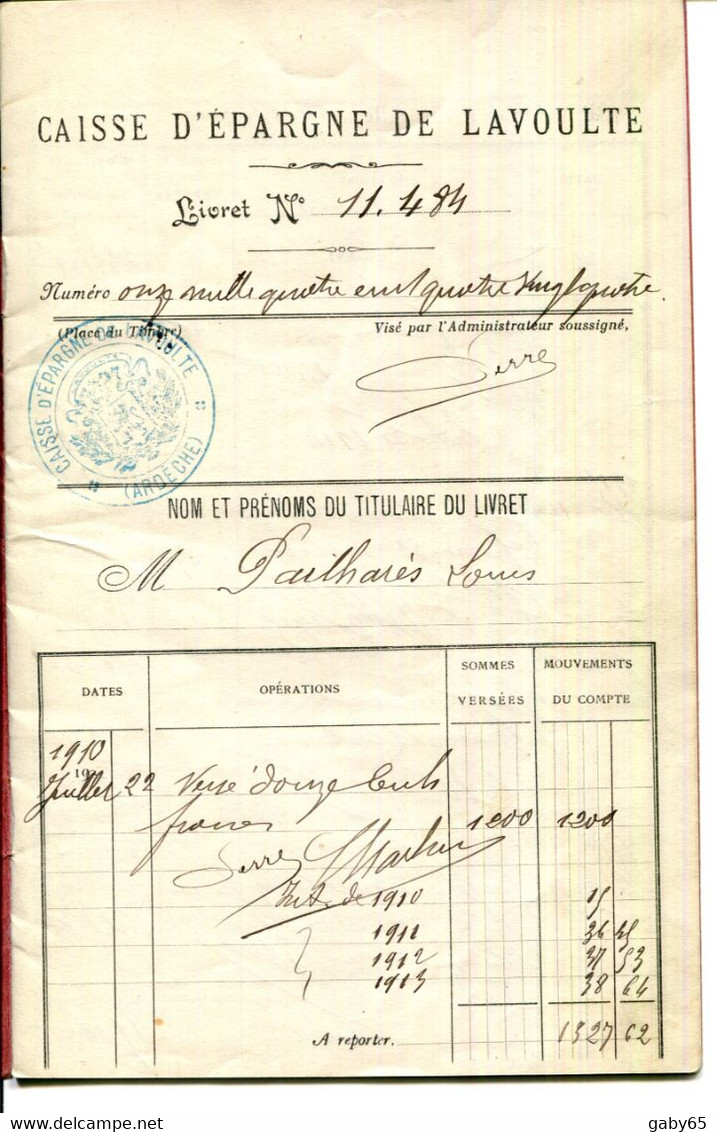 CAISSE D'ÉPARGNE DE LAVOULTE
Livret N° 11.484
Numéro onze mille quatre cent quatre vingt quatre.
(Place du Timbre) Visé par l'Administrateur soussigné,
Serre
CAISSE D'ÉPARGNE DE LAVOULTE
(ARDÈCHE)
NOM ET PRÉNOMS DU TITULAIRE DU LIVRET
M Pailharés Louis
DATES OPÉRATIONS SOMMES VERSÉES MOUVEMENTS DU COMPTE
1910
19
Juillet 22 Versé douze cents
francs 1200 1200
Serre
Int. de 1910 15
1911 36 45
1912 37 53
1913 38 64
A reporter. 1327 62
delcampe.net
gaby65